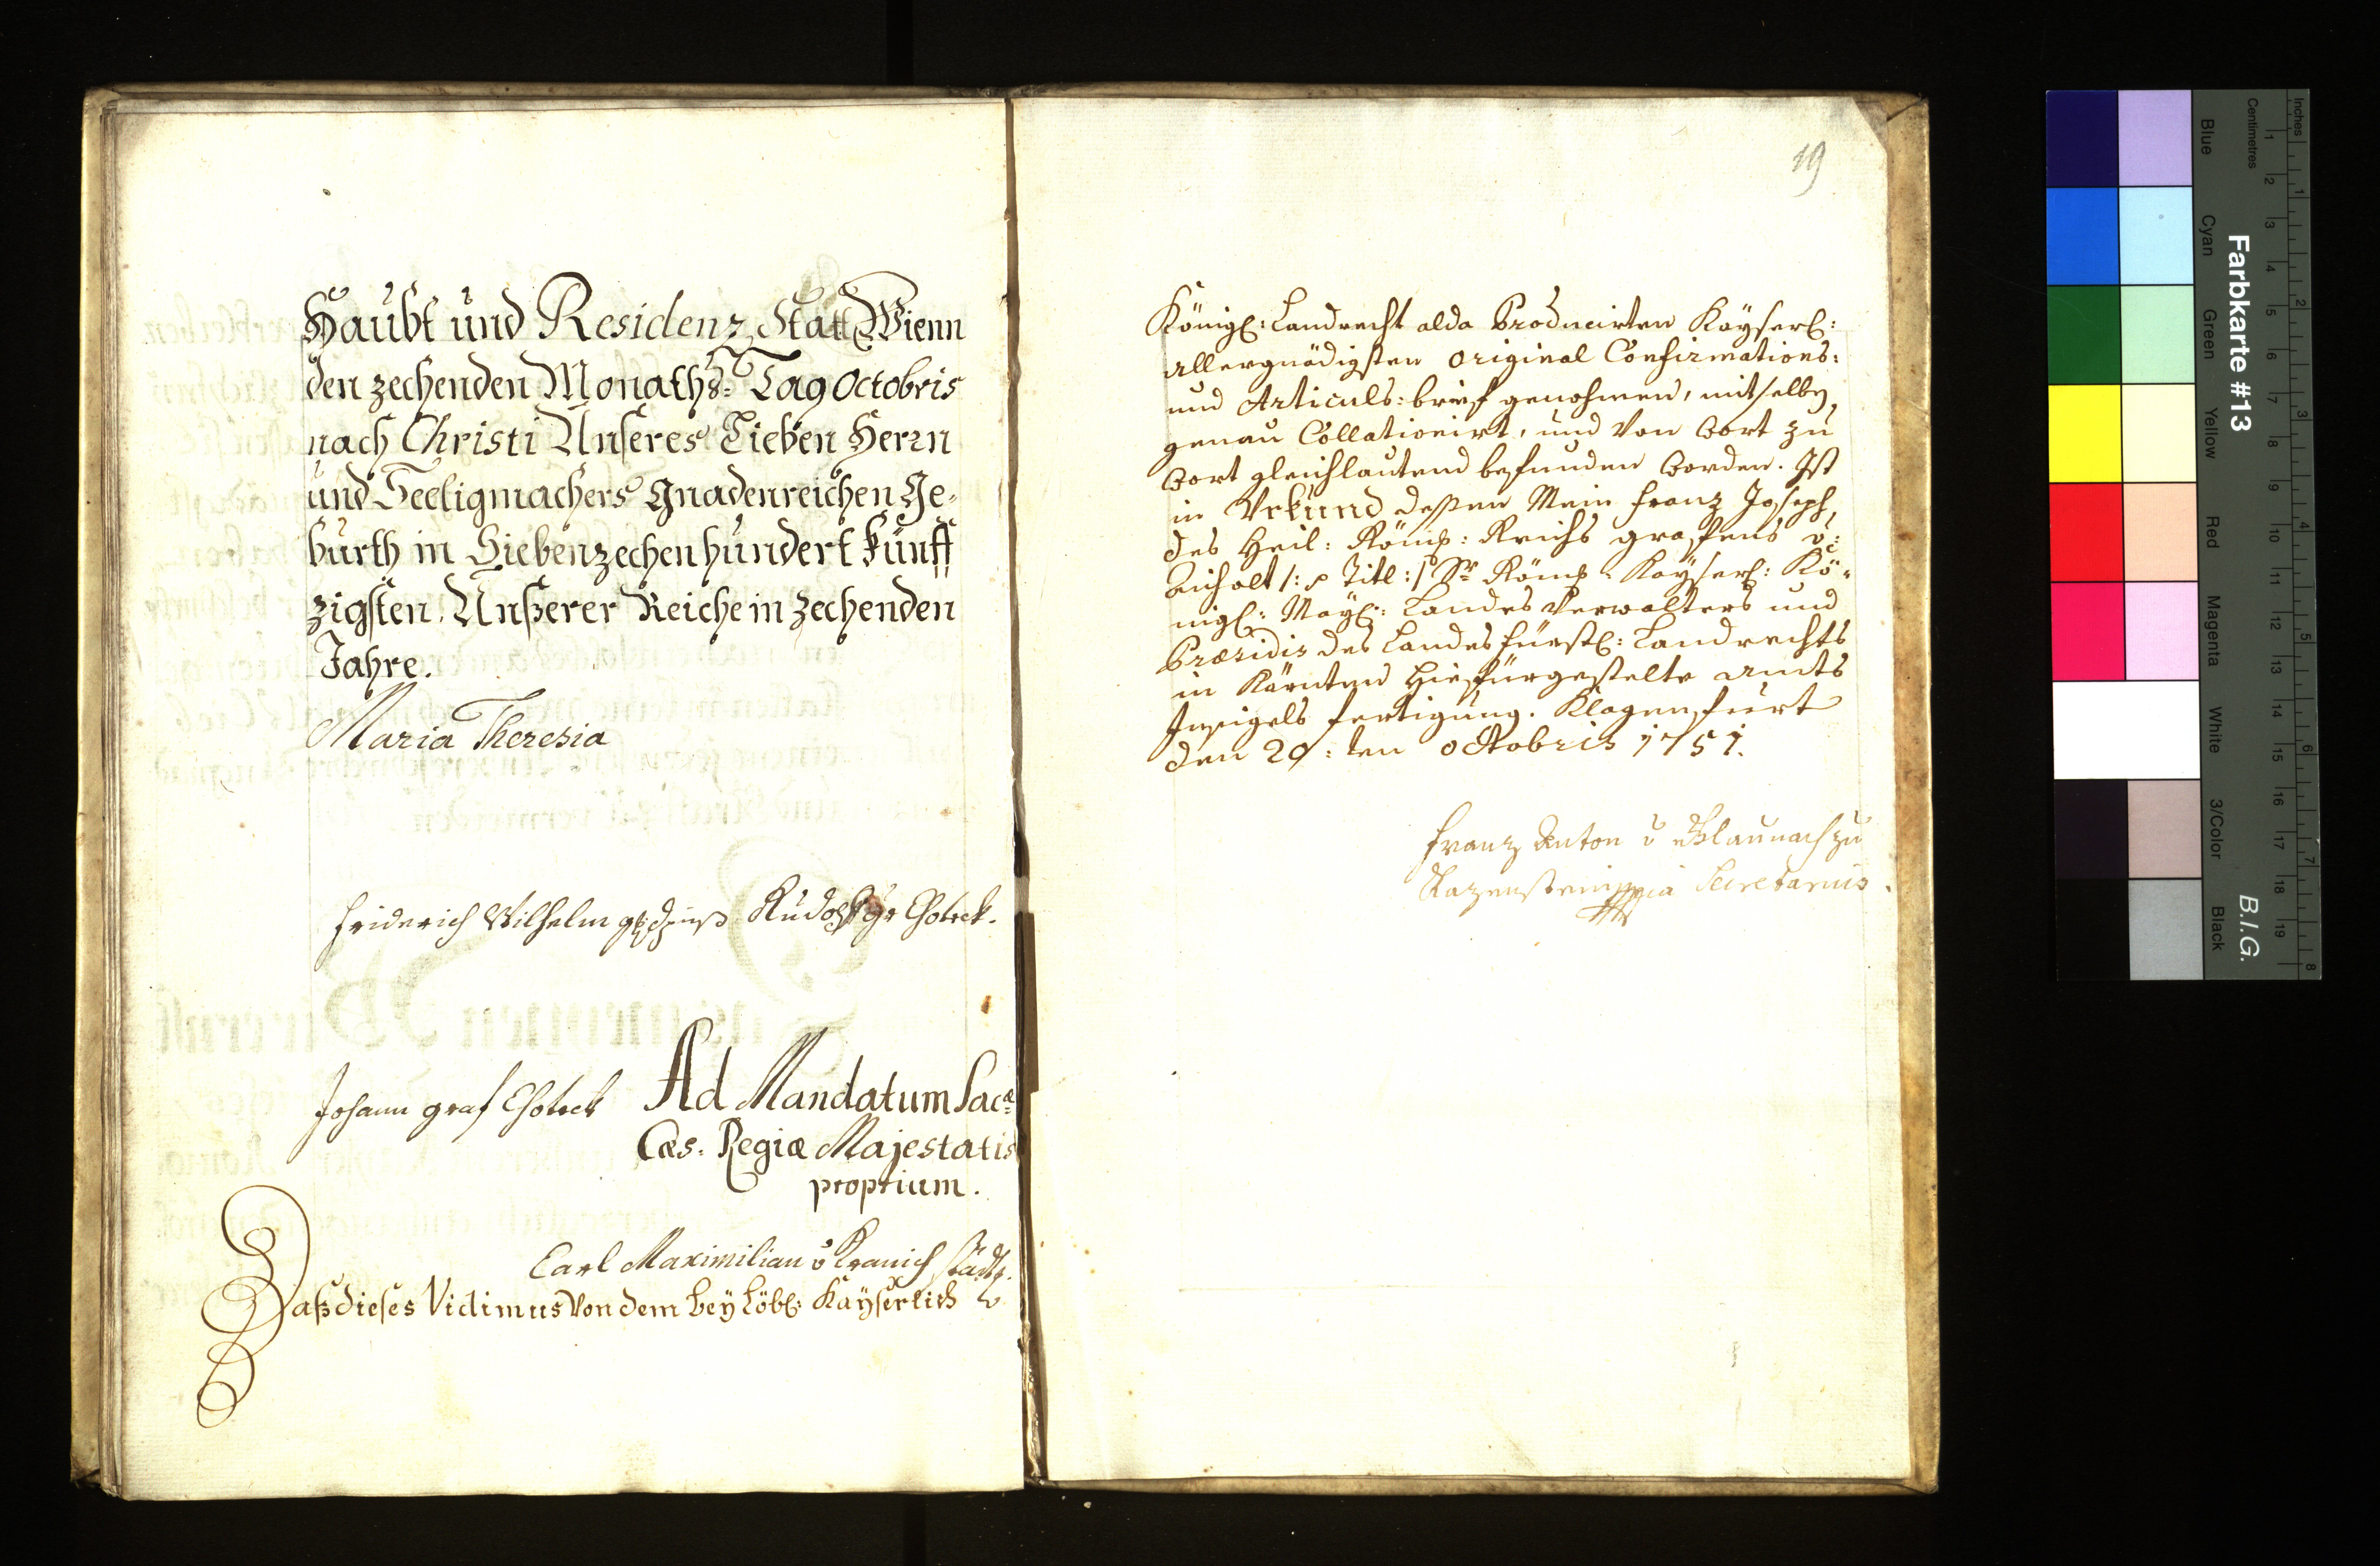 Haubt und Residenz Statt Wienn
den zechenden Monaths-Tag Octobris
nach Christi Unseres Lieben Herrn
und Seeligmachers Gnadenreichen Ge-
burth in Siebenzechenhundert Fünff
zigsten, Unßerer Reiche in zechenden
Jahre.
Maria Theresia
Friderich Wilhelm Rudolf gr Chotek.
Johann graf Chotek
Ad Mandatum Sac:
Cæs: Regiæ Majestatis
proprium.
Carl Maximilian v Kranichstädt.
Daß dieses Vidimus von dem bey Löbl: Kayserlich
19
Königl: Landrecht alda Producirten Kayserl:
allergnädigsten Original Confirmations:
und Articuls: brief genohmen, mit selben
genau Collationirt, und von Wort zu
Wort gleichlautend befunden worden. Ist
in Urkund dessen Mein Franz Joseph,
des Heil: Röm: Reichs grafens v:
Aicholt /: Titl :/ Sr Röm: Kayserl: Kö-
nigl: May: Landes Verwalters und
Præsidis des Landesfürstl: Landrechts
in Kärnten hiefürgestelte Amts
Insigels fertigung. Klagenfurt
den 29:ten Octobris 1751.
Franz Anton v Blaunach zu
Secretarius.
Farbkarte #13
B.I.G.
Inches
Centimetres
Blue
Cyan
Green
Yellow
Red
Magenta
White
3/Color
Black
1 2 3 4 5 6 7 8 9 10 11 12 13 14 15 16 17 18 19
1 2 3 4 5 6 7 8